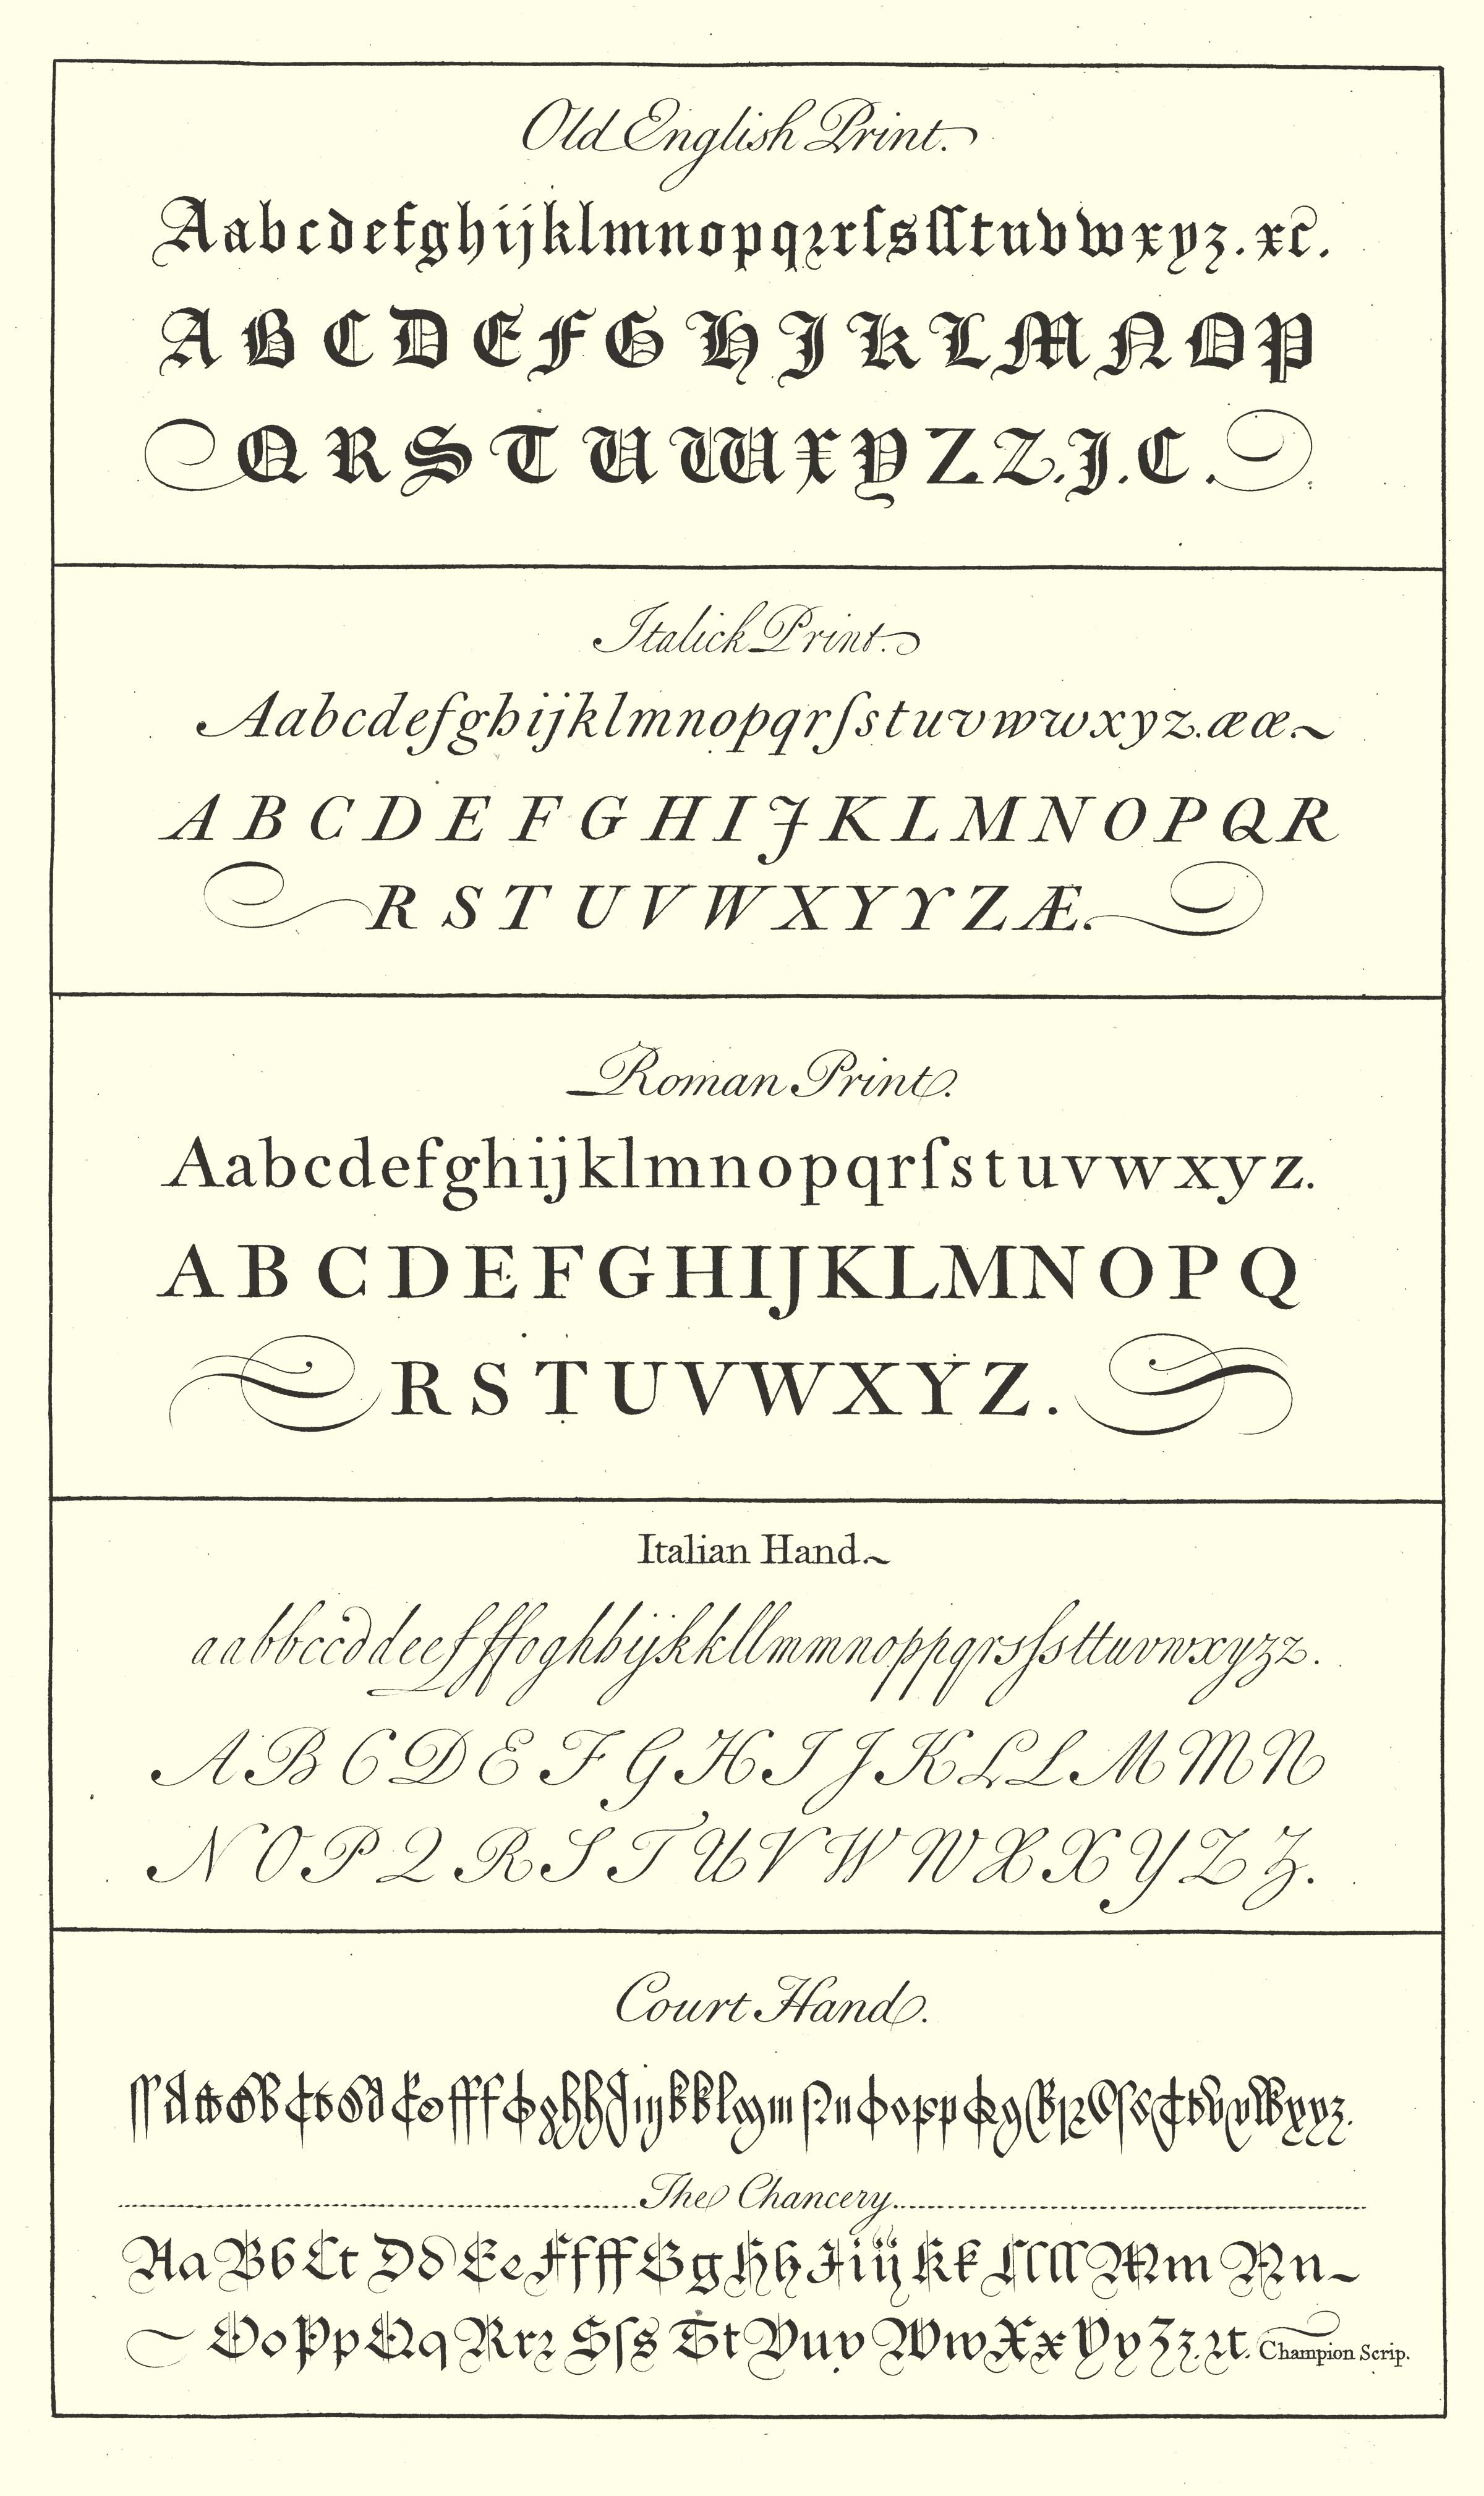 Old English Print.
Aabcdefghijklmnopqꝛrſsſſtuvwxyz. xc.
A B C D E F G H J K L M N O P
Q R S T U W X Y Z Z. J. C.
Italick Print.
Aabcdefghijklmnopqrſstuvwwxyz. æœ.
A B C D E F G H I J K L M N O P Q R
R S T U V W X Y Y Z Æ.
Roman Print.
Aabcdefghijklmnopqrſstuvwxyz.
A B C D E F G H I J K L M N O P Q
R S T U V W X Y Z.
Italian Hand.
aabbccddeefffoghhijkkllmmnoppqrsſsttuvwxyzz.
A B C D E F G H I J K L L M M N
N O P Q R S T U V W W X X Y Z Z.
Court Hand.
The Chancery.
Aa Bb Cc Dd Ee Ffff Gg Hh Jiij Kk Llll Mm Nn
Oo Pp Qq Rrꝛ Sſs Tt Vuv Ww Xx Yy Zz. &. Champion Scrip.